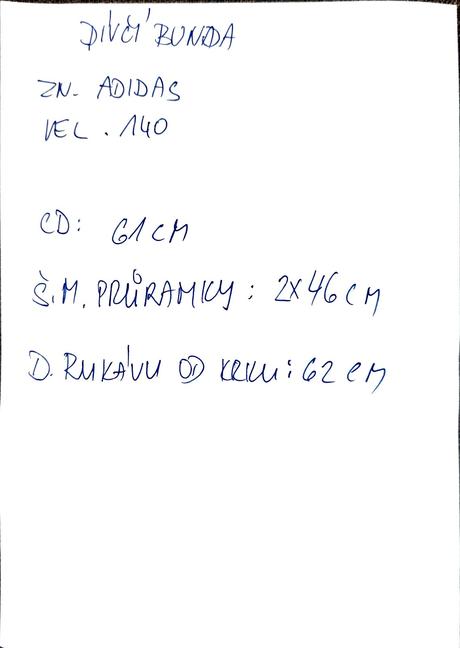 DÍVČÍ BUNDA
ZN. ADIDAS
VEL. 140
CD: 61 CM
Š.M. PRŮRAMKY: 2X46 CM
D. RUKÁVU OD KRKU: 62 CM